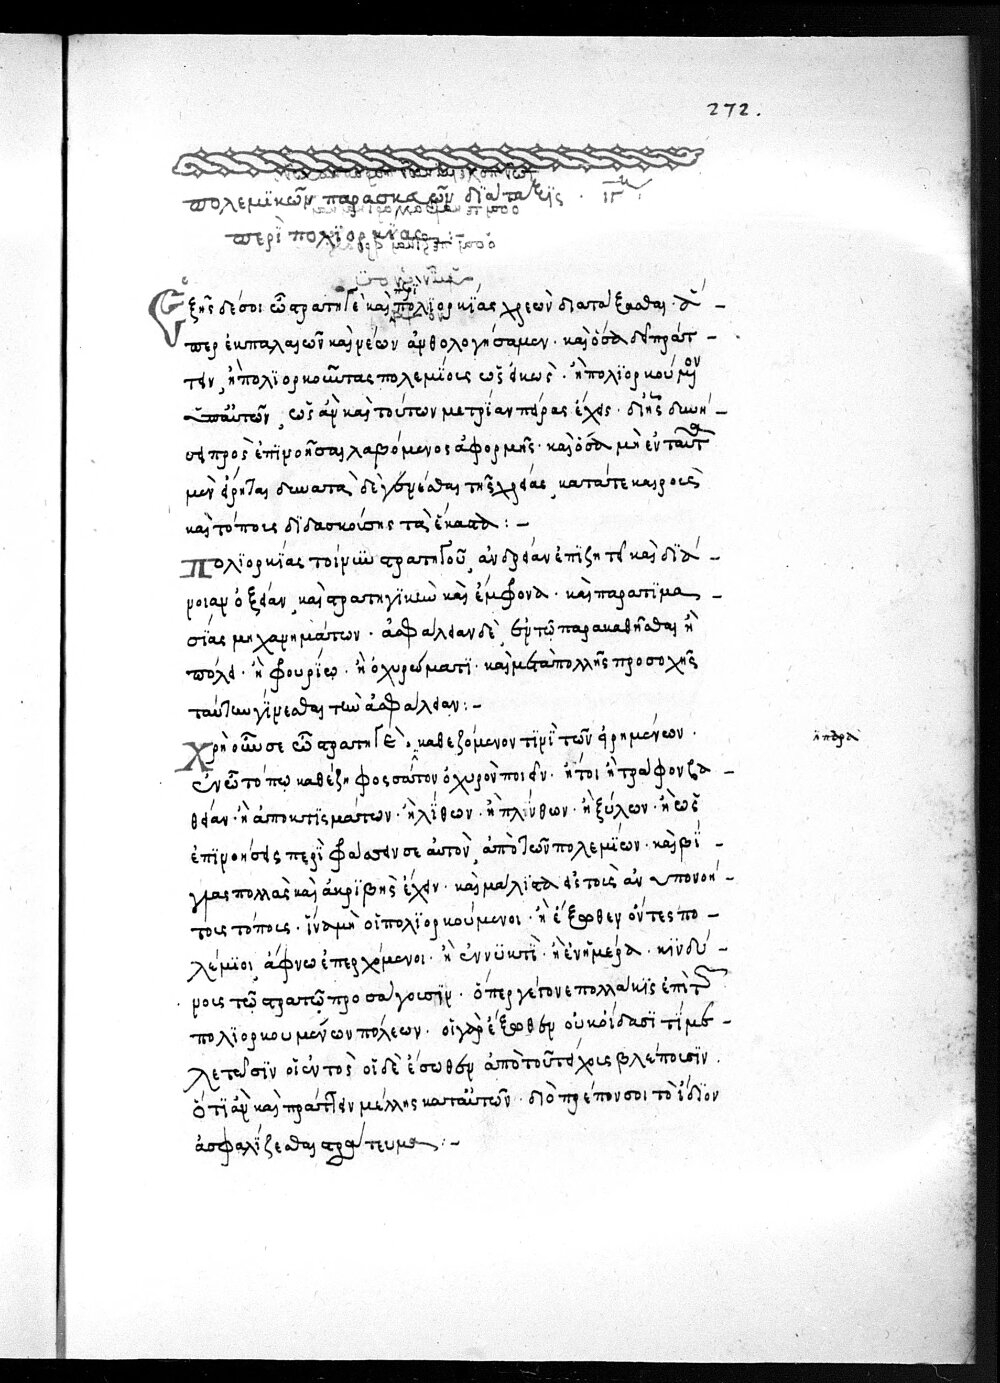 272.
πολεμικῶν παρασκευῶν διάταξις . ιγη
περὶ πολιορκίας :-
Ἑξῆς δέ σοι ὦ στρατηγὲ καὶ περὶ πολιορκίας χρεὼν διατάξασθαι . ἅ –
περ ἐκ παλαιῶν καὶ νέων ἀνθολογήσαμεν . καὶ ὅσα δεῖ πράτ –
τειν , ἢ πολιορκοῦντας πολεμίοις ὡς εἰκὸς . ἢ πολιορκούμενον
ὑπ' αὐτῶν , ὡς ἂν καὶ τούτων μετρίαν πεῖραν ἔχεις . δι' ἧς δυνή –
σει πρὸς ἐπινοῆσαι λαβόμενος ἀφορμῆς . καὶ ὅσα μὴ ἐν ταῦτα
μὲν εἴρηται δυνατὰ δὲ γενέσθαι τῆς χρείας , κατά τε καιροὺς
καὶ τόπους διδασκούσης τὰ ἕκαστα : –
Πολιορκίας τοίνυν στρατηγοῦ , ἀνδρείαν ἐπιζητεῖ καὶ διά –
νοιαν ὀξεῖαν , καὶ στρατηγικὴν καὶ ἔμφρονα . καὶ παρατιμα –
σίας μηχανημάτων . ἀσφάλειαν δὲ , ἐν τῷ παρακαθῆσθαι ἢ
πόλει . ἢ φρουρίῳ . ἢ ὀχυρώματι . καὶ μετὰ πολλῆς προσοχῆς
ταύτην γίνεσθαι τὴν ἀσφάλειαν : –
Χρὴ οὖν σε ὦ στρατηγὲ , καθεζόμενον τινὶ τῶν εἰρημένων .
ἐν ὧ τόπω καθέζη φοσσάτον ὀχυρὸν ποιεῖν . ἤτοι ἢ τραφον βα –
θεῖαν . ἢ ἀπὸ κτισμάτων . ἢ λίθων . ἢ πλίνθων . ἢ ξύλων . ἢ ὡς
ἐπινοήσεις περιφυλάσσειν σεαυτὸν , ἀπὸ τῶν πολεμίων . καὶ βί –
γλας πολλὰς καὶ ἀκριβῆς ἔχειν . καὶ μάλιστα εἰς τοὺς ἀνυπονοή –
τους τόπους . ἵνα μὴ οἱ πολιορκούμενοι . ἢ ἔξωθεν ὄντες πο –
λέμιοι , ἄφνω ἐπερχόμενοι . ἢ ἐν νυκτὶ . ἢ ἐν ἡμέρα . κινδύ –
νους τῶ στρατῶ προσάγουσιν . ὅπερ γέγονε πολλάκις ἐπὶ τῶν
πολιορκουμένων πόλεων . οἱ γὰρ ἔξωθεν οὐκ οἴδασι τί με –
λετῶσιν οἱ ἐντὸς οἱ δὲ ἔσωθεν ἀπὸ τοῦ τείχους βλέπουσιν .
ὅτι ἂν καὶ πράττειν μέλλης κατ' αὐτῶν . διὸ πρέπον σοι τὸ ἴδιον
ἀσφαλίζεσθαι στράτευμα : –
ἢ παρὰ